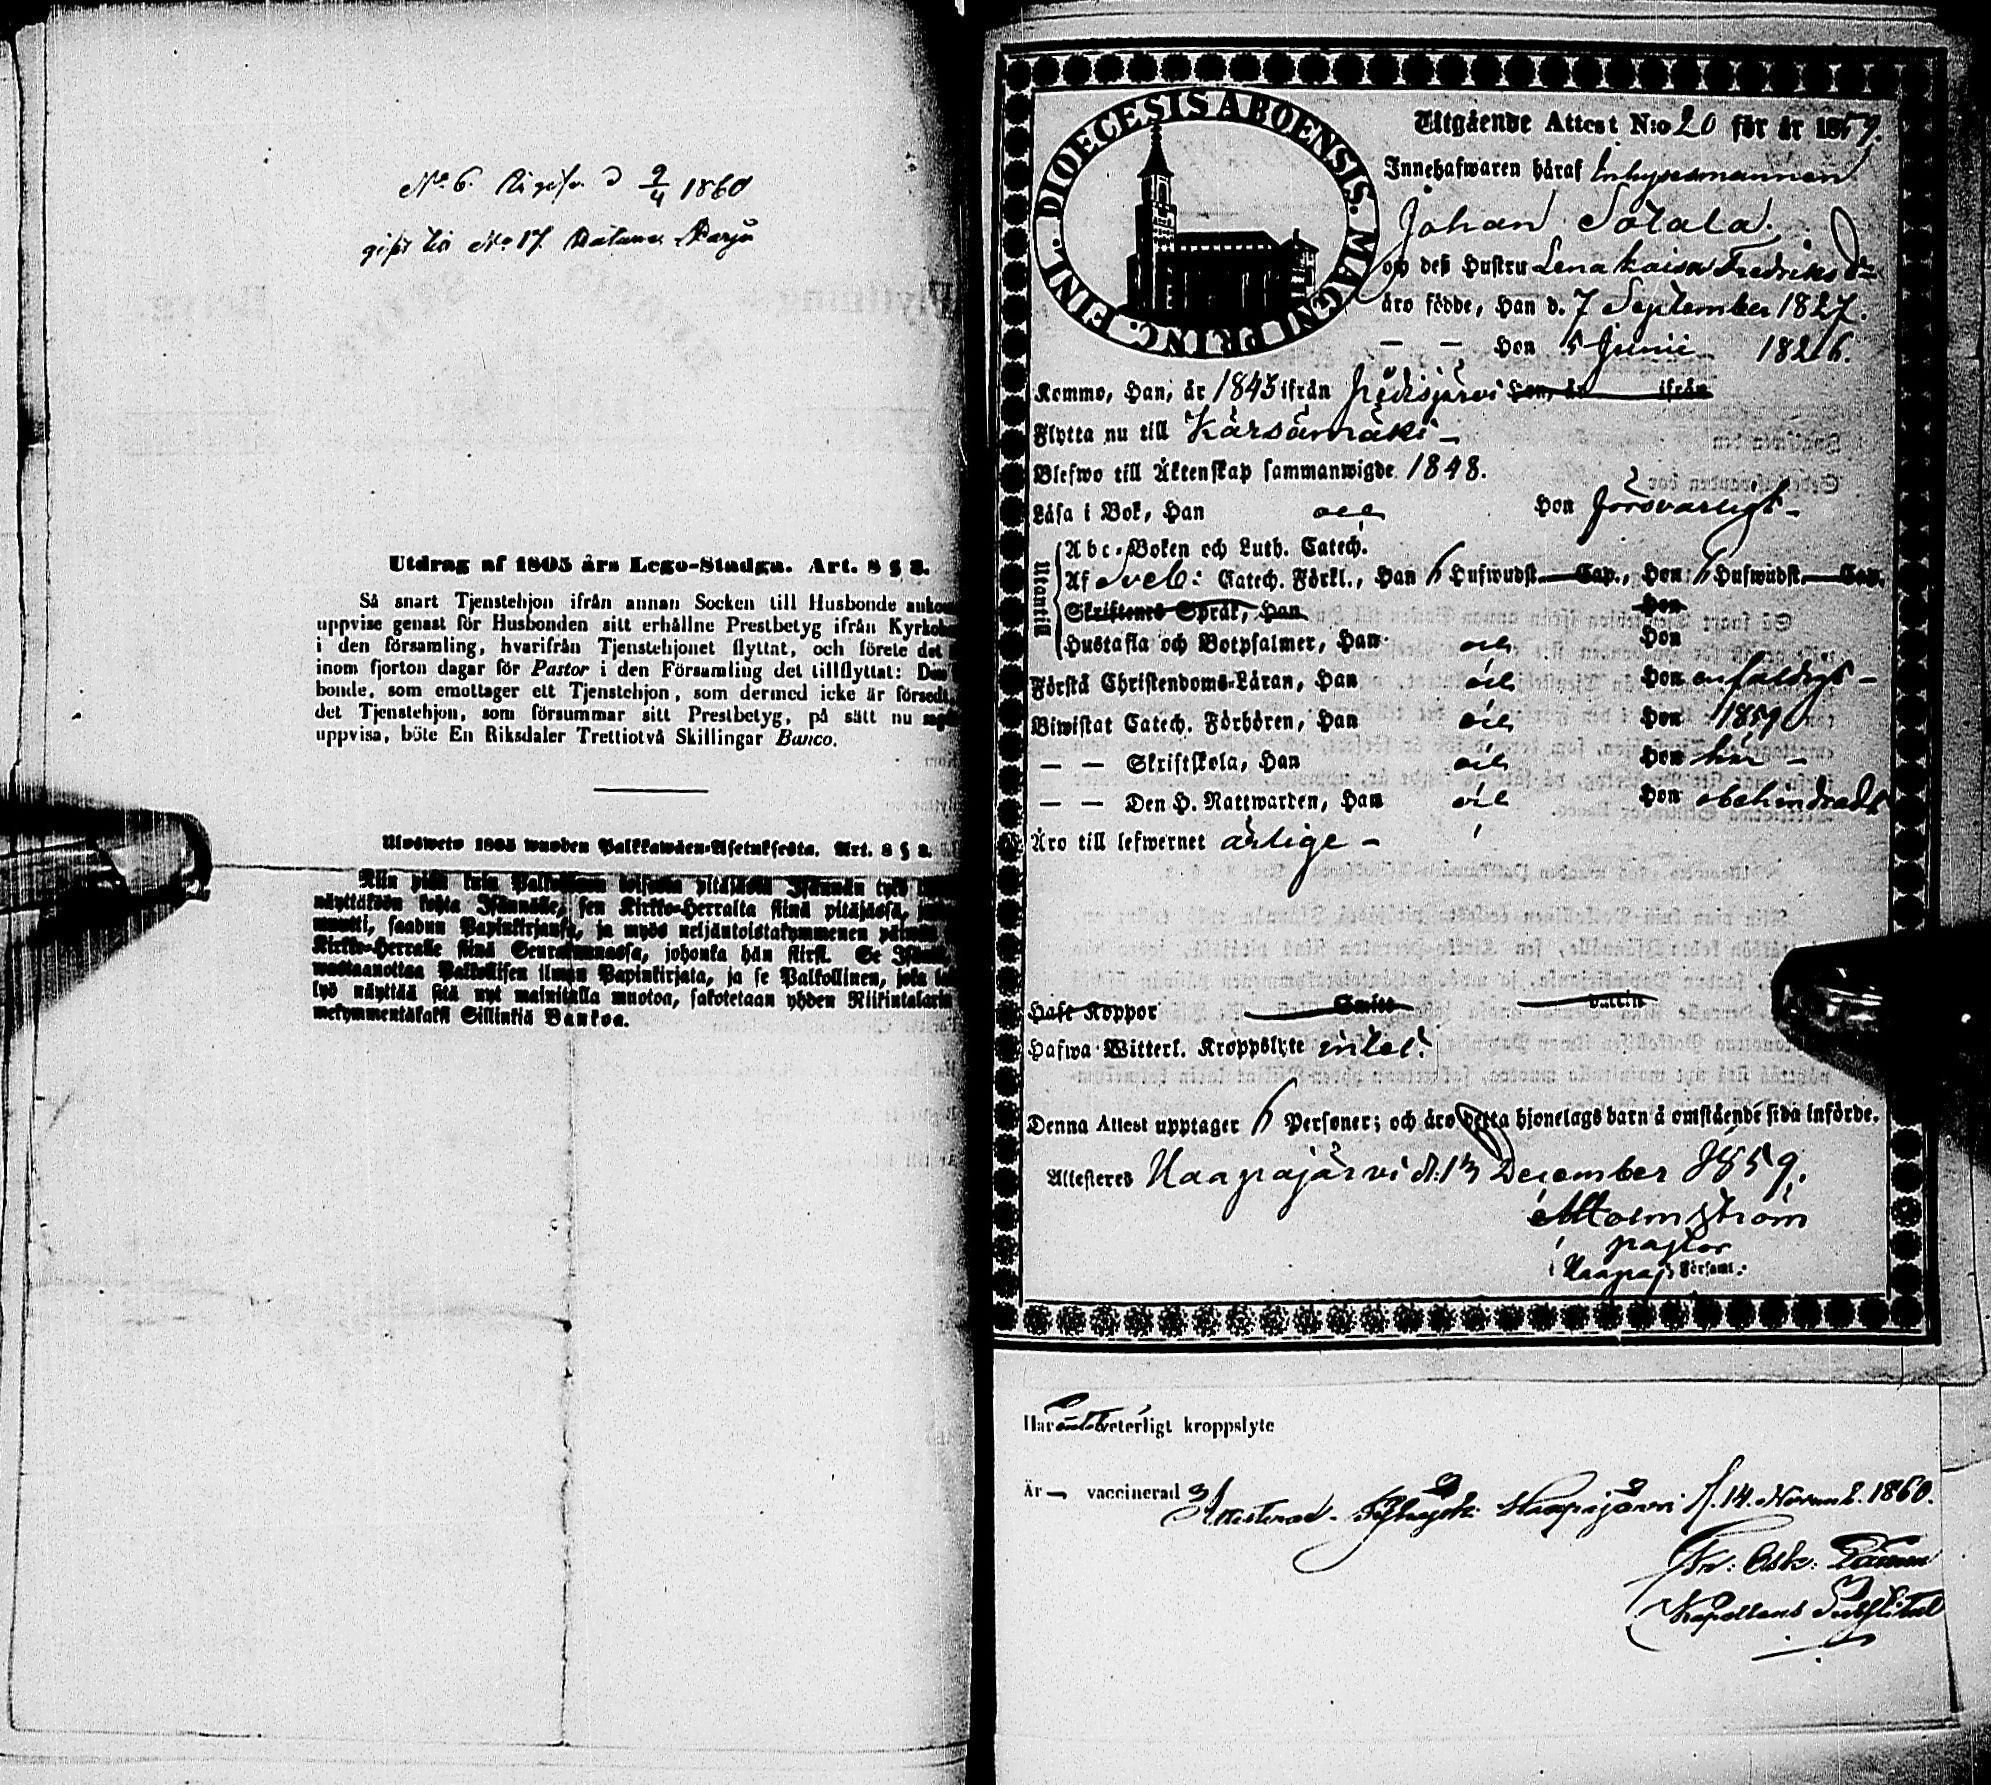 No 6. 9/4 1860
gift till No 17
Utdrag af 1805 års Lego-Stadga. Art. 8 § 8.
Så snart Tjenstehjon ifrån annan Socken till Husbonde
uppvise genast för Husbonden sitt erhållne Prestbetyg ifrån
i den församling, hvarifrån Tjenstehjonet flyttat, och förete det
inom fjorton dagar för Pastor i den Församling det tillflyttat:
bonde, som emottager ett Tjenstehjon, som dermed icke är
det Tjenstehjon, som försummar sitt Prestbetyg, på sätt nu
uppvisa, böte En Riksdaler Trettiotvå Skillingar Banco.
Ulosweto 1805 wuoden Palkkawäen-Asetuksesta. Art. 8 § 8.
Niin pian kuin pitäjästä Isännän tykö
näyttäköön kohta Isännälle, sen Kirkko-Herralta siinä pitäjässä,
muutti, saadun Papinkirjansa, ja myös neljäntoistakymmenen
Kirkko-Herralle siinä Seurakunnassa, johonka hän siirsi. Se
wastaanottaa Palkollisen ilman Papinkirjata, ja se Palkollinen, joka
lyö näyttää sitä nyt mainitulla muotoa, sakotetaan yhden Riikintalarin
mekymmentäkaksi Sillinkiä Bankoa.
DIOECESIS ABOENSIS. MAGNI PRINC. FINL.
Utgående Attest N:o 20 för år 1859.
Innehafwaren häraf Inhysesmannen
Johan Sotala.
och deß Hustru Lena Kaisa Fredriks dr
äro födde, Han d. 7 September 1827.
— — Hon 5 Junii 1826.
Kommo, Han, år 1845 ifrån Pidisjärvi Hon, år ifrån
Flytta nu till Kärsämäki –
Blefwo till Äktenskap sammanwigde 1848.
Läsa i Bok, Han och Hon försvarligt –
Utantill
Abc-Boken och Luth. Catech.
Af Sveb: Catech. Förkl., Han 6 Hufwudst. Cap., Hon 6 Hufwudst. Cap.
Skriftenes Språk, Han Hon
Hustafla och Botpsalmer, Han och Hon
Förstå Christendoms-Läran, Han och Hon enfaldigt –
Biwistat Catech. Förhören, Han och Hon 1859
— — Skriftskola, Han och Hon här –
— — Den H. Nattwarden, Han och Hon obehindradt
Äro till lefwernet ärlige –
Haft Koppor Smitt Vaccin
Hafwa Witterl. Kroppslyte intet.
Denna Attest upptager 6 Personer; och äro detta hjonelags barn å omstående sida införde.
Attesteras Haapajärvi d. 13 December 1859.
Holmström
pastor
Haapaj. Församl.
Har intet veterligt kroppslyte
Är — vaccinerad
Attesterad. Haapajärvi d. 14 Novemb. 1860.
Kapellans Substitut